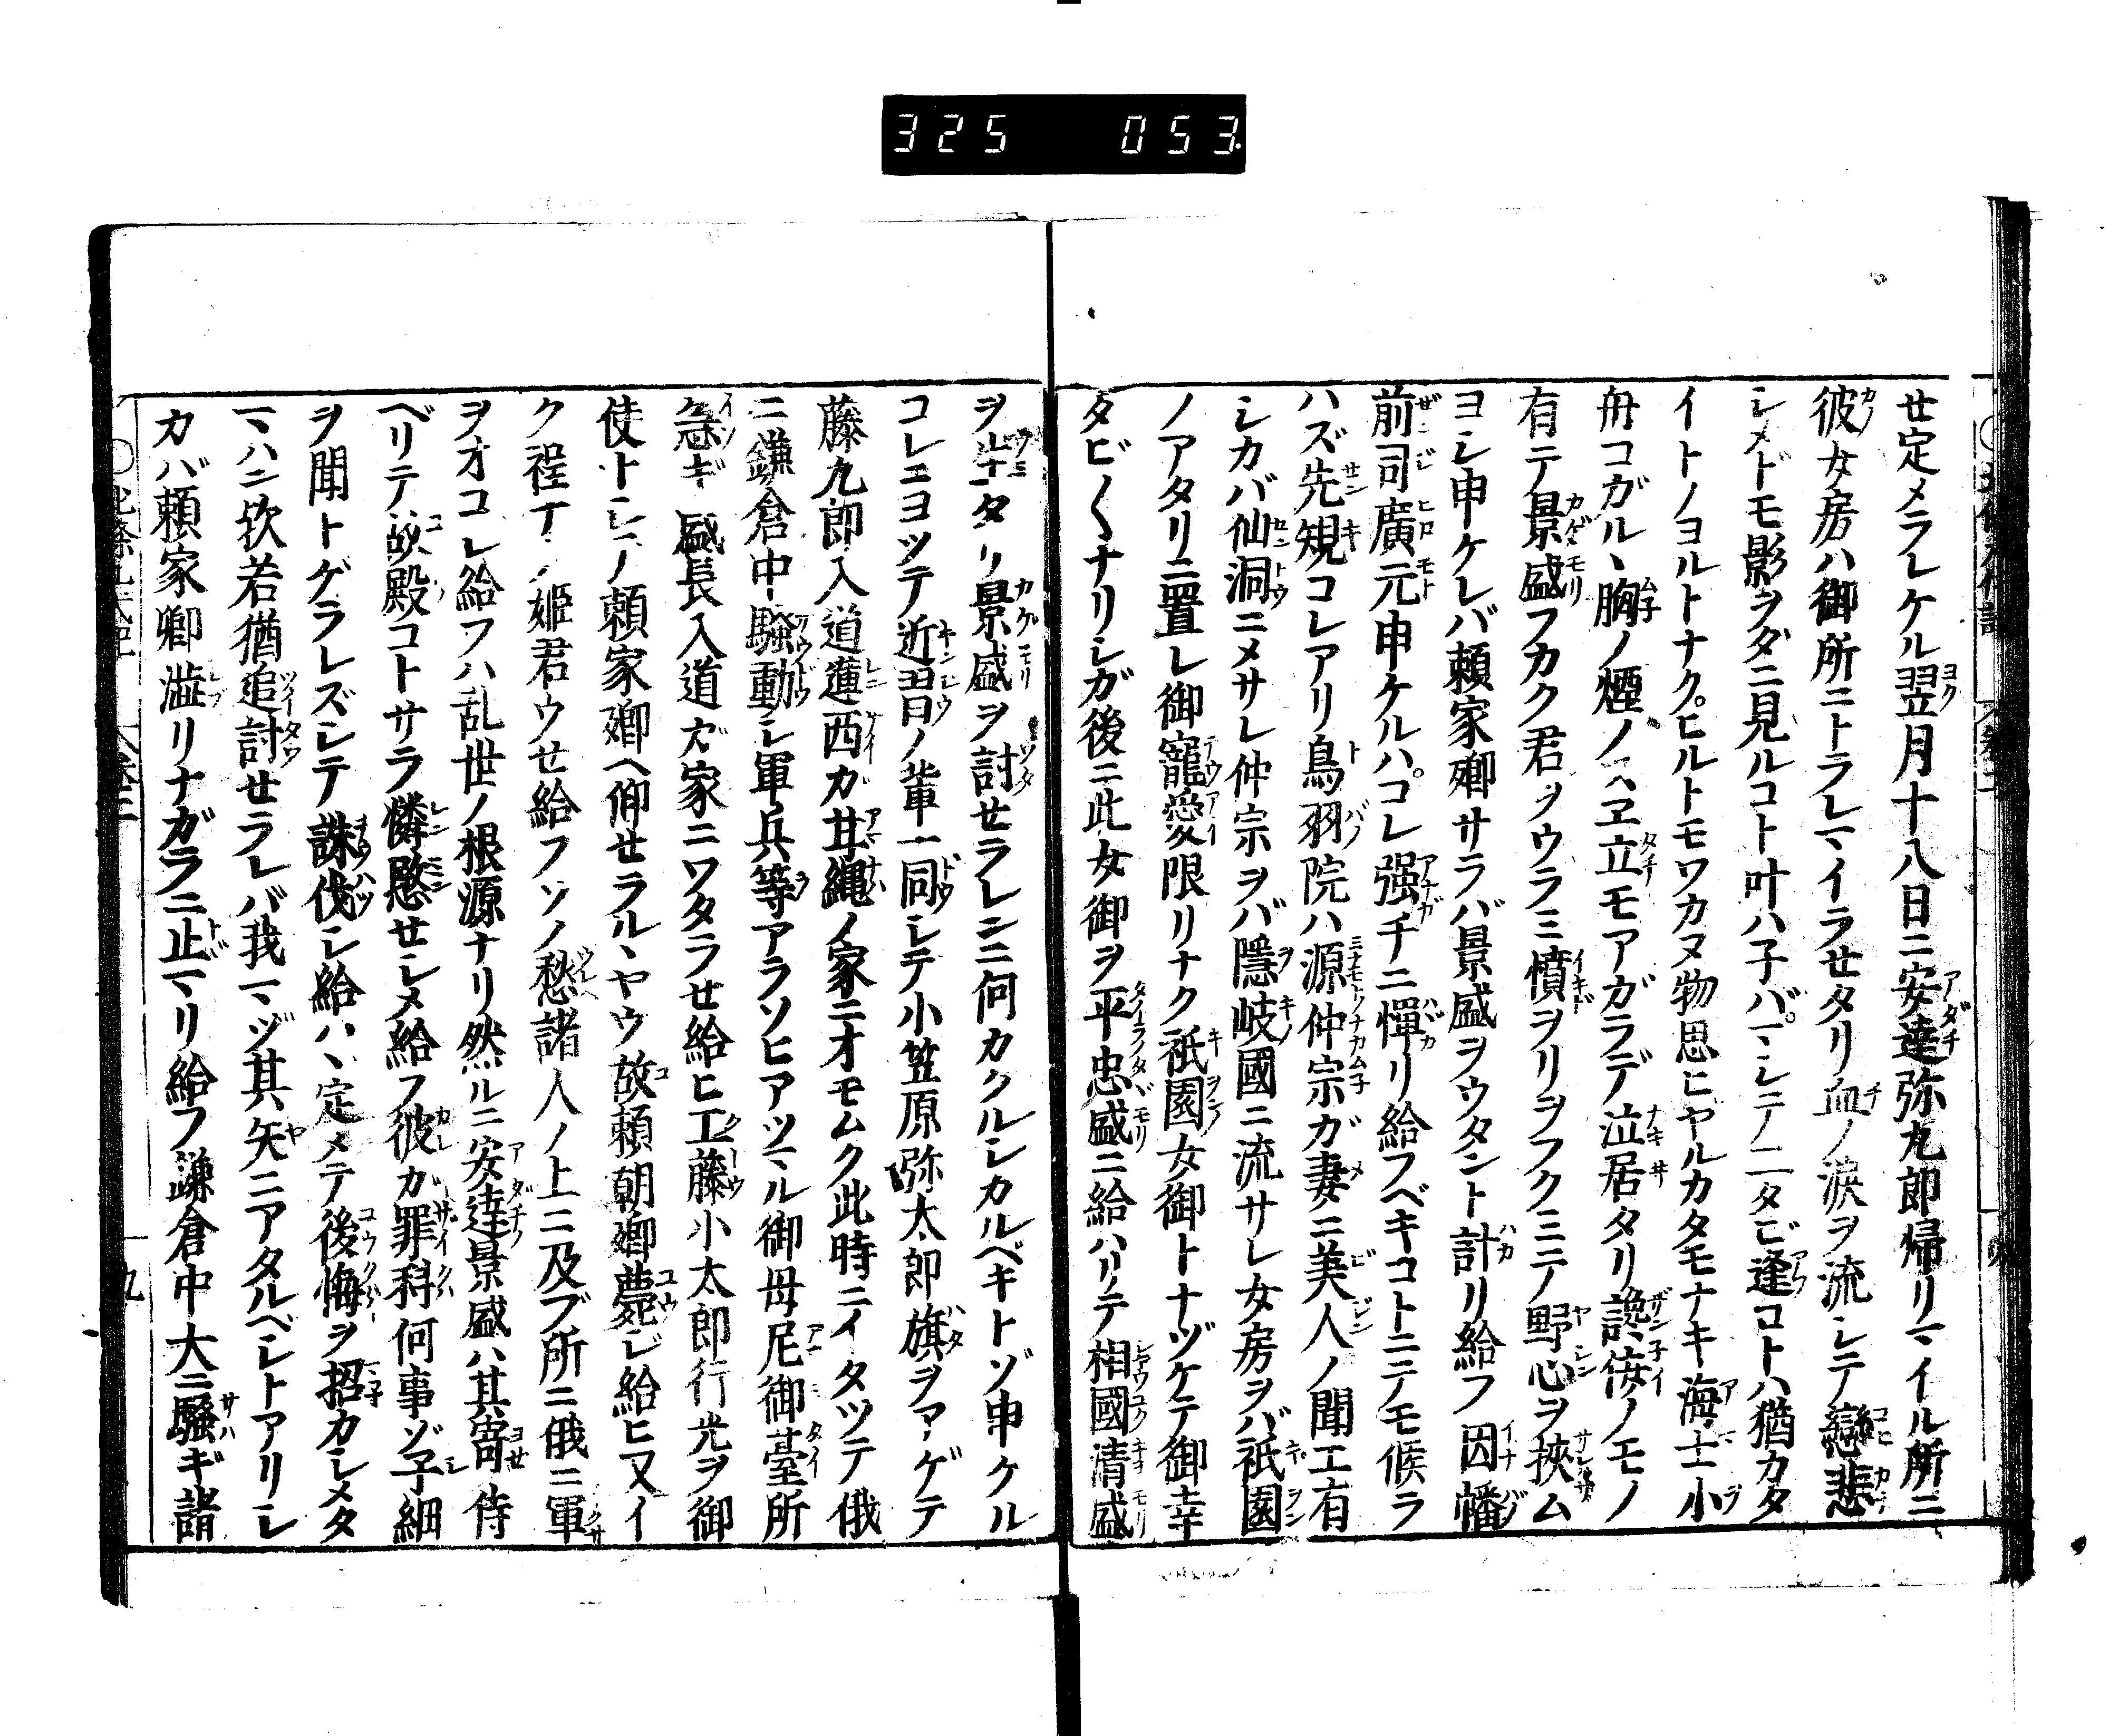 325 053
せ定メラレケル翌月十八日ニ安達弥九郎帰リマイル所ニ
彼女房ハ御所ニトラレマイラせタリ血ノ涙ヲ流シテ戀悲
シメドモ影ヲダニ見ルコト叶ハ子バマシテ二タビ逢コトハ猶カタ
イトノヨルトナクヒルトモワカヌ物思ヒヤルカタモナキ海士小
舟コガルヽ胸ノ煙ノヘヱ立モアガラデ泣居タリ讒侫ノモノ
有テ景盛フカク君ヲウラミ憤ヲリヲフクミテ野心ヲ挾ム
ヨシ申ケレバ頼家卿サラバ景盛ヲウタント計リ給フ因幡
前司廣元申ケルハコレ强チニ憚リ給フベキコトニテモ候ラ
ハズ先規コレアリ鳥羽院ハ源仲宗ガ妻ニ美人ノ聞エ有
シカバ仙洞ニメサレ仲宗ヲバ隱岐國ニ流サレ女房ヲバ祇園
ノアタリニ置レ御寵愛限リナク祇園女御トナヅケテ御幸
タビ〱ナリシガ後ニ此女御ヲ平忠盛ニ給ハリテ相國清盛
ヲ生タリ景盛ヲ討せラレンニ何カクルシカルベキトゾ申ケル
コレニヨツテ近習ノ輩一同シテ小笠原弥太郎旗ヲアゲテ
藤九郎入道蓮西ガ甘縄ノ家ニオモムク此時ニイタツテ俄
ニ鎌倉中騒動シ軍兵等アラソヒアツマル御母尼御臺所
急ギ盛長入道ガ家ニワタラせ給ヒ工藤小太郎行光ヲ御
使トシテ頼家卿ヘ仰せラルヽヤウ故頼朝卿薨ジ給ヒ又イ
ク程ナク姫君ウせ給フソノ愁諸人ノ上ニ及ブ所ニ俄ニ軍
ヲオコシ給フハ乱世ノ根源ナリ然ルニ安達景盛ハ其寄侍
ベリテ故殿コトサラ憐愍せシメ給フ彼ガ罪科何事ゾ子細
ヲ聞トゲラレズシテ誅伐シ給ハヽ定メテ後悔ヲ招カシメタ
マハン歟若猶追討せラレバ我マヅ其矢ニアタルベシトアリシ
カバ頼家卿澁リナガラニ止マリ給フ鎌倉中大ニ騒ギ諸
九